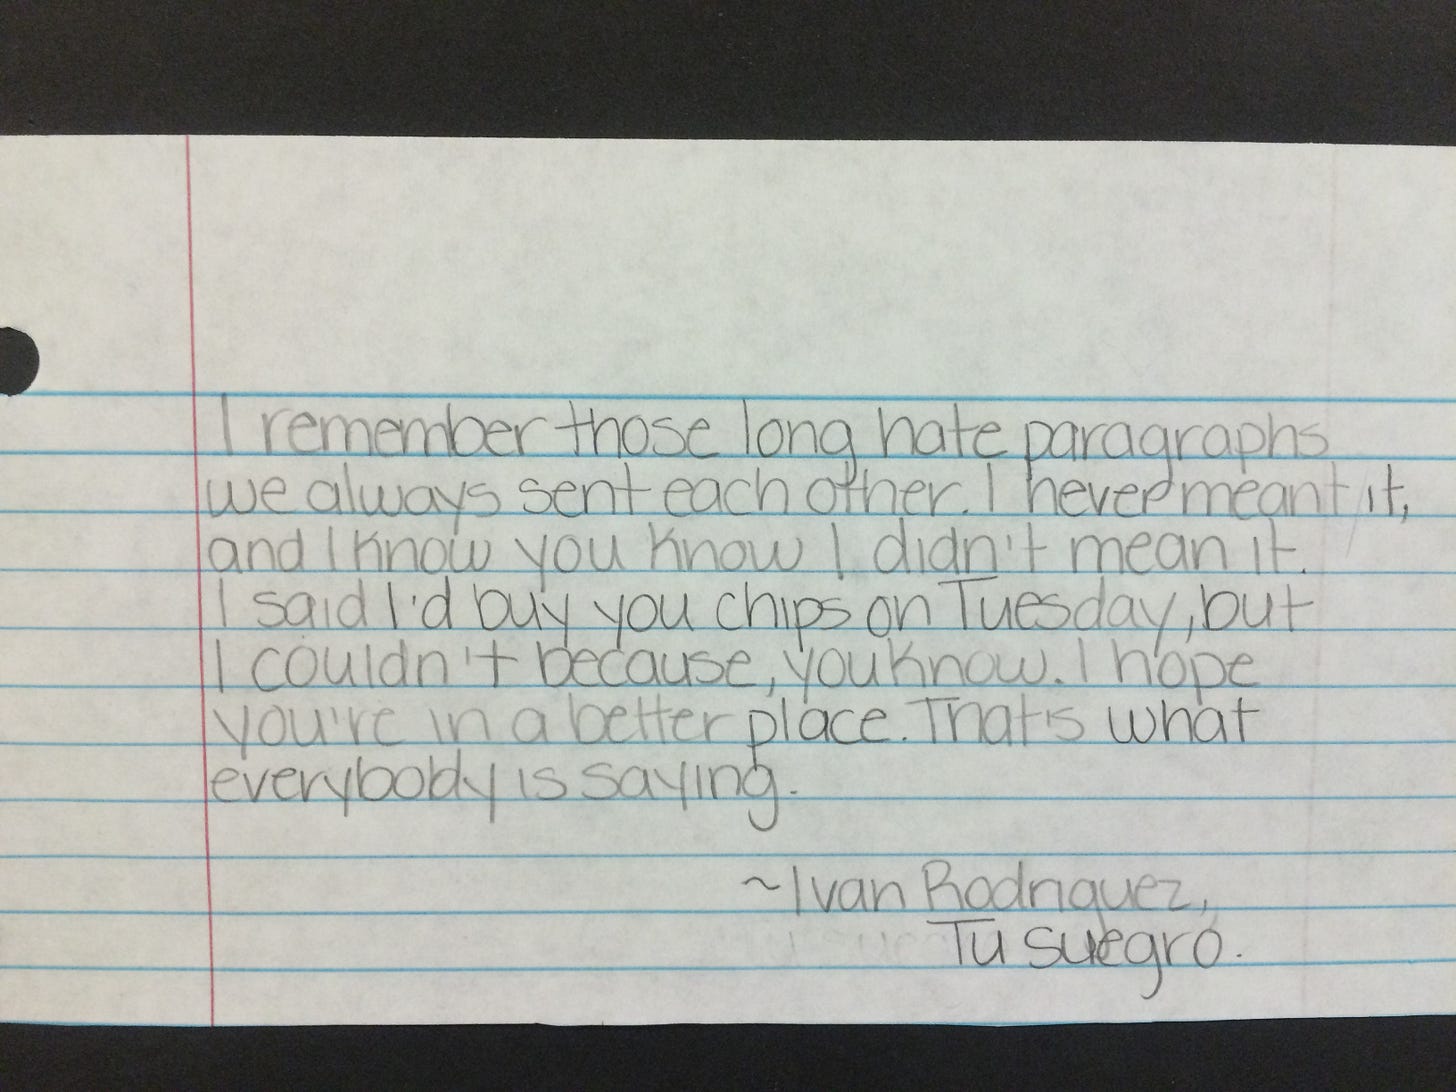 I remember those long hate paragraphs
we always sent each other. I never meant it,
and I know you know I didn't mean it.
I said I'd buy you chips on Tuesday, but
I couldn't because, you know. I hope
you're in a better place. That's what
everybody is saying.
~Ivan Rodriguez,
Tu suegro.